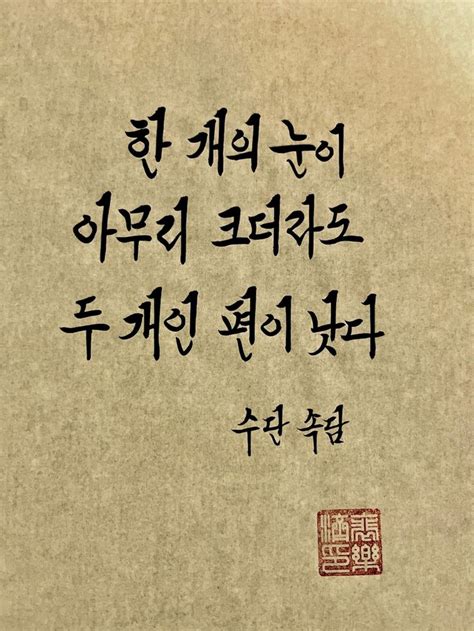 한 개의 눈이
아무리 크더라도
두 개인 편이 낫다
수단 속담